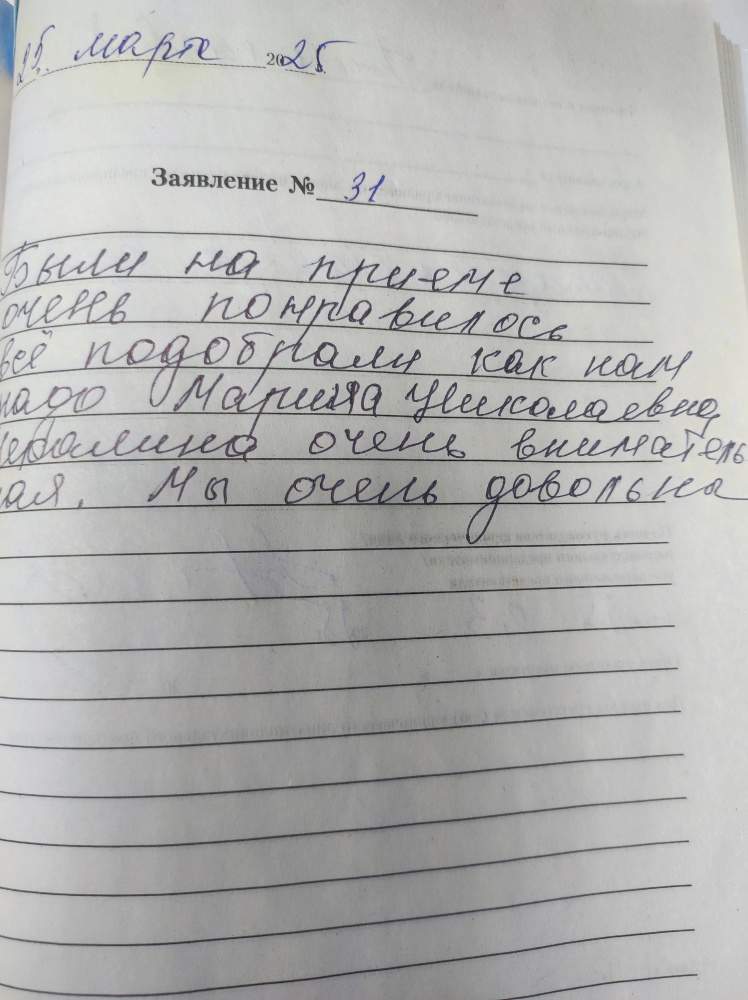 25 марта 2025
Заявление № 31
Были на приеме
очень понравилось
всё подобрали как нам
надо Марина Николаевна
очень вниматель
ная. Мы очень довольны